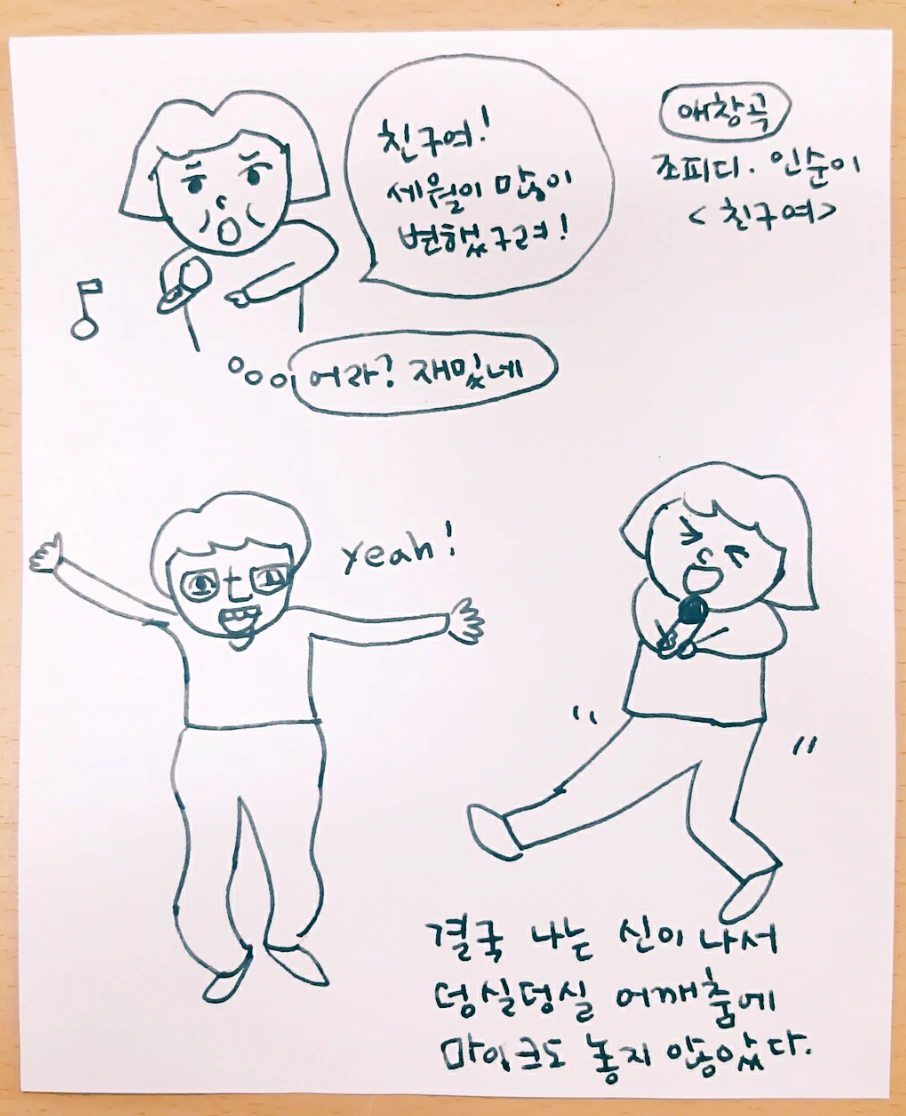 친구여!
세월이 많이
변했구려!
애창곡
조피디. 인순이
<친구여>
어라? 재밌네
yeah!
결국 나는 신이 나서
덩실덩실 어깨춤에
마이크도 놓지 않았다.